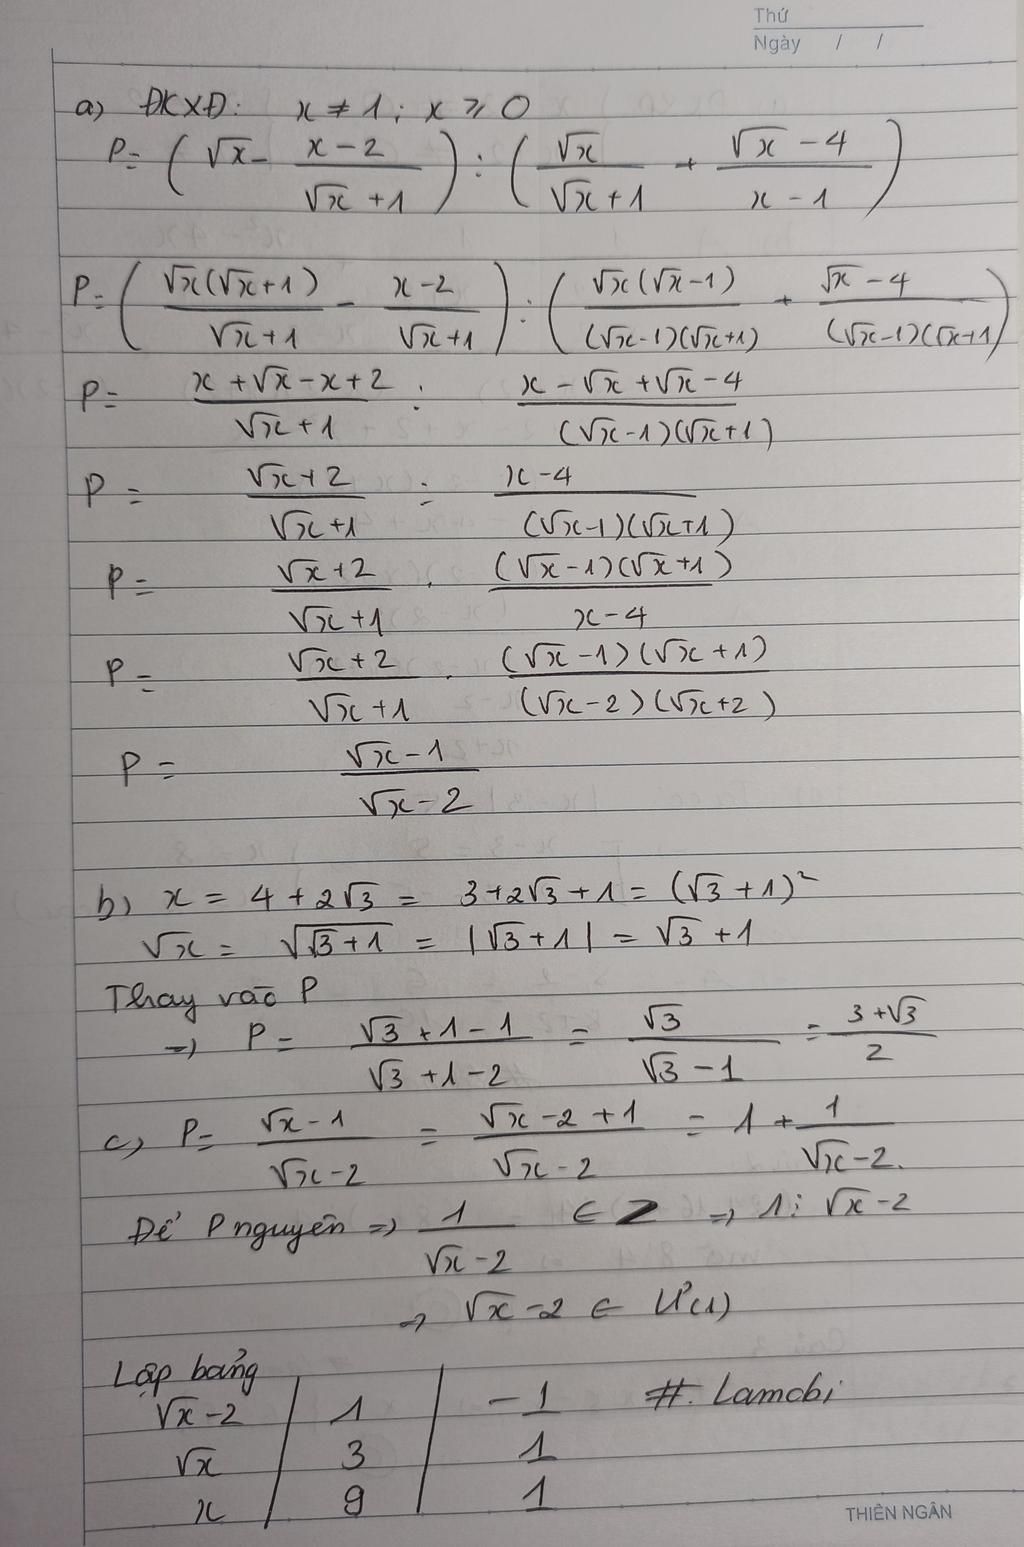 Thứ
Ngày / /
a) ĐKXĐ: x ≠ 1; x ⩾ 0
P = (√x - (x-2)/(√x+1)) : (√x/(√x+1) + (√x-4)/(x-1))
P = (√x(√x+1)/(√x+1) - (x-2)/(√x+1)) : (√x(√x-1)/((√x-1)(√x+1)) + (√x-4)/((√x-1)(√x+1))
P = (x+√x-x+2)/(√x+1) : (x-√x+√x-4)/((√x-1)(√x+1))
P = (√x+2)/(√x+1) : (x-4)/((√x-1)(√x+1))
P = (√x+2)/(√x+1) . ((√x-1)(√x+1))/(x-4)
P = (√x+2)/(√x+1) . ((√x-1)(√x+1))/((√x-2)(√x+2))
P = (√x-1)/(√x-2)
b) x = 4+2√3 = 3+2√3+1 = (√3+1)²
√x = √(√3+1) = |√3+1| = √3+1
Thay vào P
=> P = (√3+1-1)/(√3+1-2) = √3/(√3-1) = (3+√3)/2
c) P = (√x-1)/(√x-2) = (√x-2+1)/(√x-2) = 1 + 1/(√x-2).
Để P nguyên => 1/(√x-2) ∈ Z => 1 ⋮ √x-2
=> √x-2 ∈ Ư(1)
Lập bảng
√x-2 | 1 | -1 #. Lamchi
√x | 3 | 1
x | 9 | 1
THIÊN NGÂN